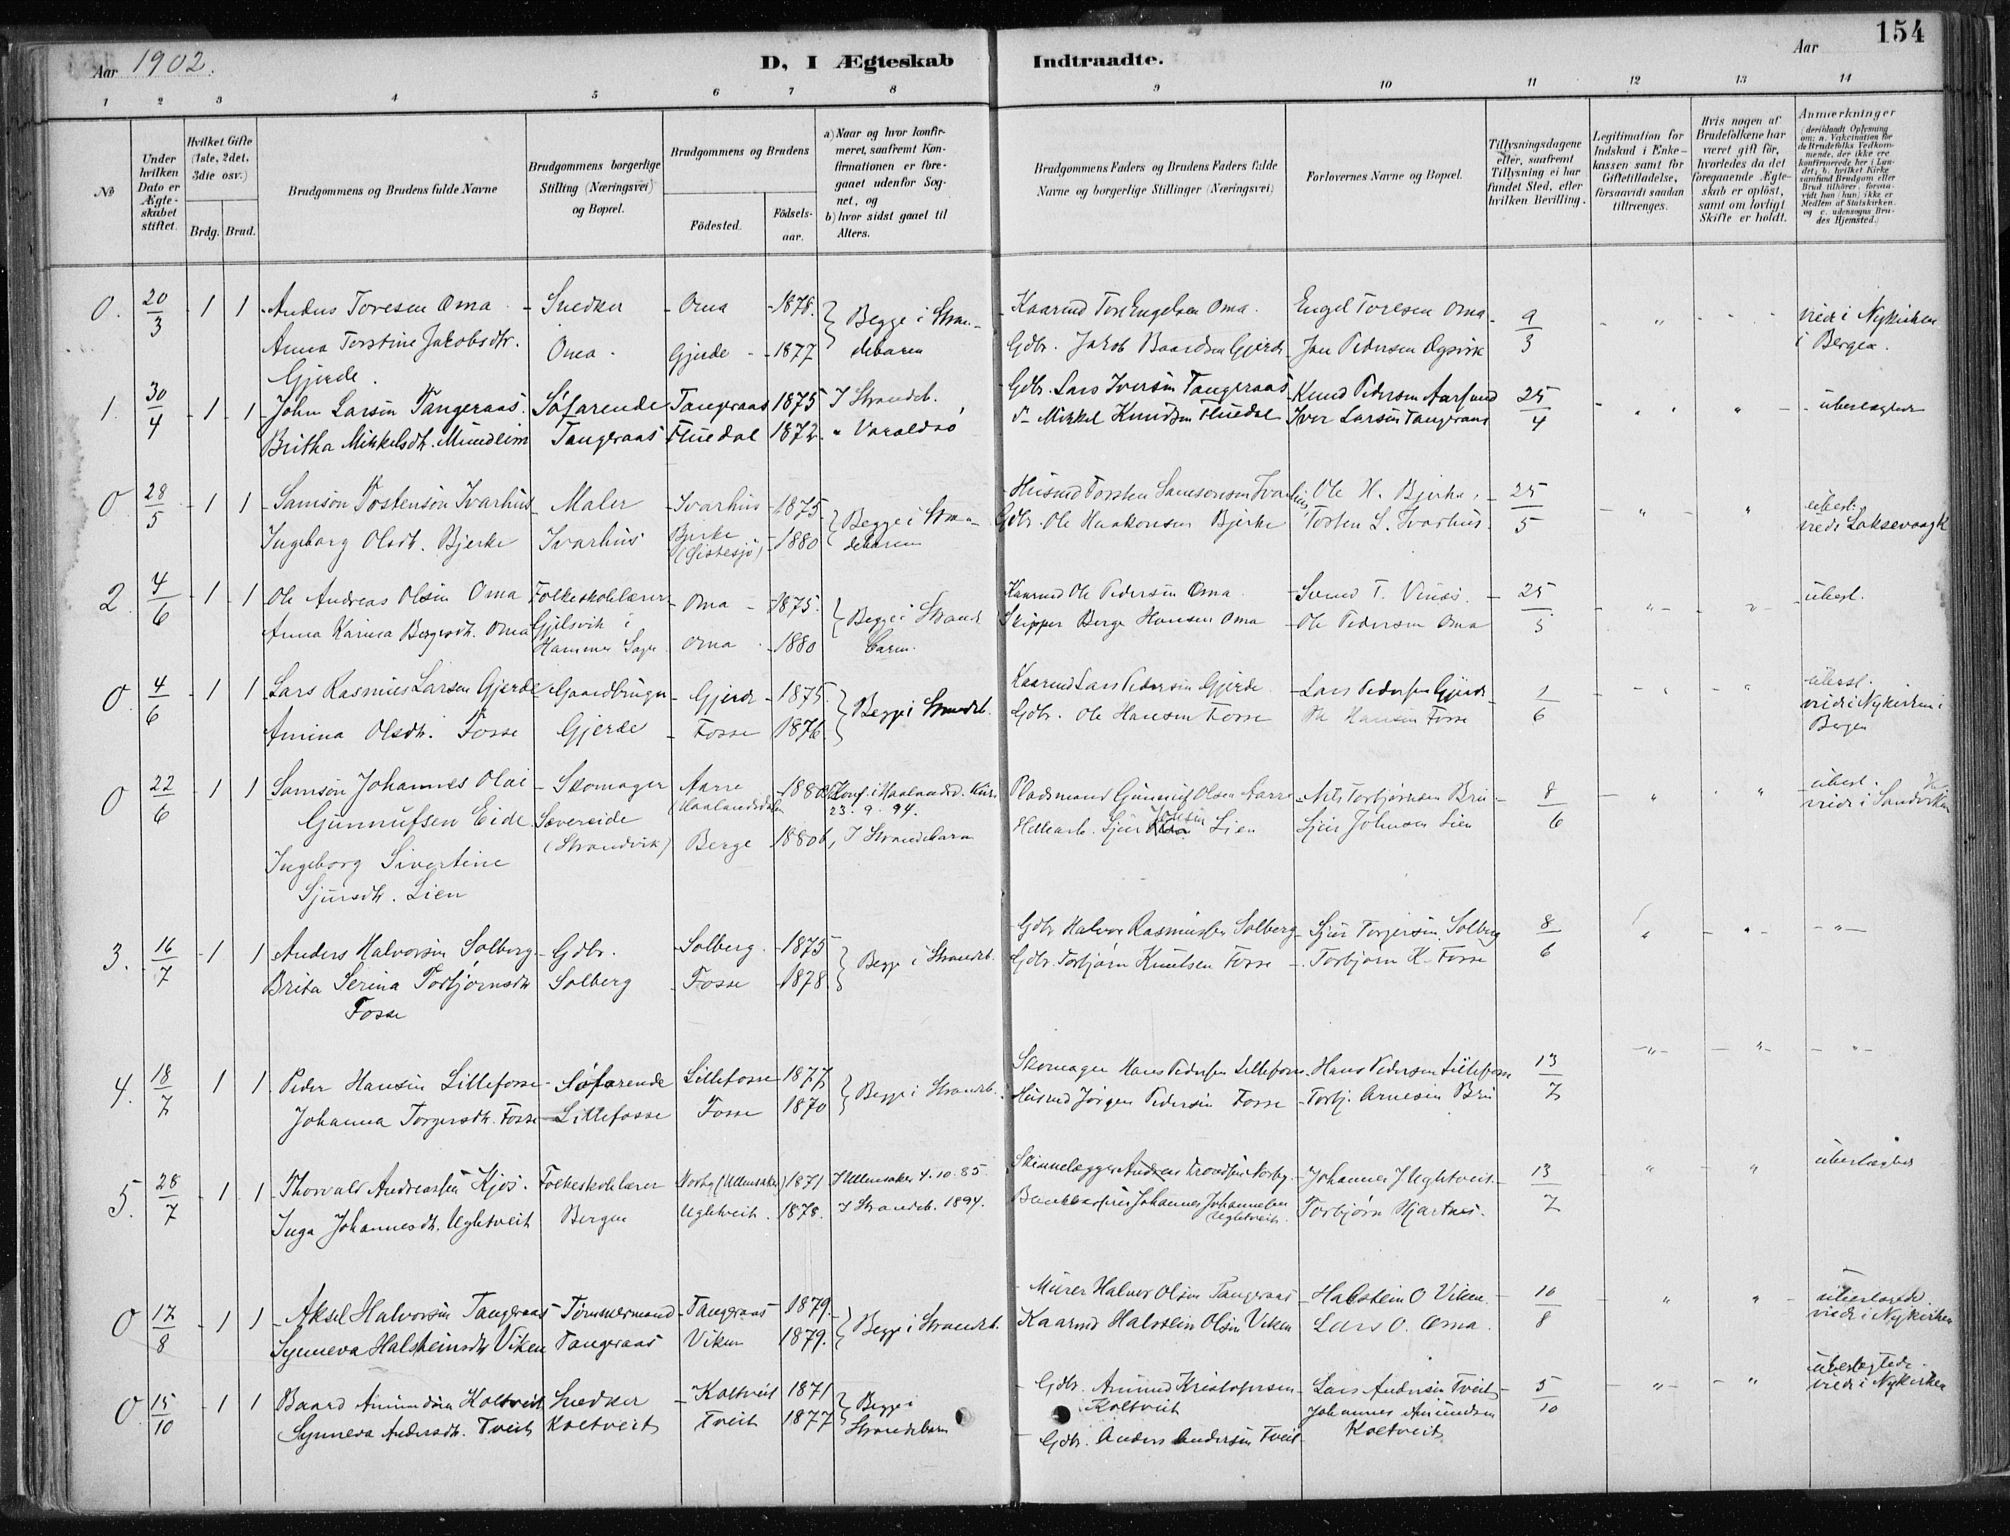 154
Aar 1902.
D, I Ægteskab Indtraadte.
Aar
1 2 3 4 5 6 7 8 9 10 11 12 13 14
No
Under hvilken Dato er Ægteskabet stiftet.
Hvilket Gifte (1ste, 2det, 3die osv.)
Brdg. Brud.
Brudgommens og Brudens fulde Navne
Brudgommens borgerlige Stilling (Næringsvei) og Bopæl.
Brudgommens og Brudens
Fødested.
Fødsels-aar.
a) Naar og hvor konfirmeret, saafremt Konfirmationen er foregaaet udenfor Sognet, og
b) hvor sidst gaaet til Alters.
Brudgommens Faders og Brudens Faders fulde Navne og borgerlige Stillinger (Næringsvei)
Forlovernes Navne og Bopæl.
Tillysningsdagene eller, saafremt Tillysning ei har fundet Sted, efter hvilken Bevilling.
Legitimation for Indskud i Enkekassen samt for Giftetilladelse, forsaavidt saadan tiltrænges.
Hvis nogen af Brudefolkene har været gift før, hvorledes da det foregaaende Ægteskab er opløst, samt om lovligt Skifte er holdt.
Anmærkninger
0. 20/3 1 1 Anders Toresen Oma Snedker Oma 1878. Kaarmd Tore Engelsen Oma. Engel Toresen Oma 9/3 viede i Nykirken
Anna Torstine Jakobsdtr. Oma Gjerde 1877 Begge i Strandebarm Gdbr. Jakob Baardsen Gjerde Jan Pedersen i Bergen.
Gjerde.
1. 30/4 1 1 John Larsen Tangeraas. Søfarende Tangeraas 1875 I Strandeb. Gdbr. Lars Iversen Tangeraas Knud Pedersen 25/4
Britha Mikkelsdtr. Mundheim Tangeraas Fluedal 1872 " Varaldsø Mikkel Knudsen Fluedal Iver Larsen Tangeraas
0 28/5 1 1 Samson Tostenson Ivarhus Maler Ivarhus 1875 Husmd Torsten Samsonsen Ivarhus Ole H. Bjerke 25/5 uberl.
Ingeborg Olsdtr. Bjerke Ivarhus Bjerke 1880 Begge i Strandebarm Gdbr. Ole Haakonsen Bjerke Tosten S. Ivarhus. viede Laksevaag
2 4/6 1 1 Ole Andreas Olsen Oma Folkeskolelærer Oma 1875. Kaarmd Ole Pedersen Oma. Svend T. Vinæs. 25/5 uberl.
Anna Karina Bergesdtr. Oma i Hammer Sogn Oma 1880 Begge i Strandebarm. Skipper Berge Hansen Oma Ole Pedersen Oma
0 4/6 1 1 Lars Rasmus Larsen Gjerde Gaardbruger Gjerde 1875. Kaarmd Lars Pedersen Gjerde Lars Pedersen Gjerde 1/6 uberl.
Amina Olsdtr. Fosse Gjerde Fosse 1876 Begge i Strandeb. Gdbr. Ole Hansen Fosse Hansen Fosse viede i Nykirken i Bergen
0 22/6 1 1 Samson Johannes Olai Skomager Aarre 1880 Konf. i Haalandsd. Kirke Pladsmand Gunnuf Olsen Aarre Nils Torbjørnsen Bru 8/6 uberl.
Gunnufsen Eide Sævereide (Haalandsdalen 23.9.94. viede i Sandviken
Ingeborg Sivertine (Strandvik) Berge 1880 b, I Strandebarm Sjur Lien Sjur Johnsen Lien
Sjursdtr. Lien
3. 16/7 1 1 Anders Halvorsen Solberg Gdbr. Solberg. 1875 Gdbr Halvor Rasmussen Solberg Sjur Torgersen Solberg 8/6
Brita Serina Torbjørnsdtr Solberg Fosse 1878. Begge i Strandeb. Gdbr. Torbjørn Knutsen Fosse Torbjørn K. Fosse
Fosse
4. 18/7 1 1 Peder Hansen Lillefosse Søfarende Lillefosse 1877 Skomager Hans Pedersen Lillefosse Hans Pedersen Lillefosse 13/7
Johanna Torgersdtr. Fosse Lillefosse Fosse 1870 Begge i Strandeb. Husmd Jørgen Pedersen Fosse Torbj. Arnesen Bru
5. 28/7 1 1 Thorvald Andreassen Kjos. Folkeskolelærer Norby (Ullensaker) 1871 I Ullensaker 4.10.85 Norby. Johannes J Ughtveit 13/7 uberlagtes
Inga Johannesdtr. Ughtveit Bergen Ughtveit. 1878. I Strandeb. 1894. Johannes Johannesen Ughtveit. Torbjørn Hjartnes.
0 17/8 1 1 Aksel Halvorsen Tangeraas Tømmermand Tangeraas 1879. Murer Halvor Olsen Tangeraas Halstein O Viken. 10/8
Synneva Halsteinsdtr Viken Tangeraas Viken 1879. Begge i Strandeb. Kaarmd Halstein Olsen Viken Lars O. Oma. viede i Nykirken
0. 15/10 1 1 Baard Amundsen Koltveit Snedker Koltveit 1871 Begge i Gdbr. Amund Kristofersen Koltveit Lars Andersen Tveit 5/10 viede i Nykirken
Synneva Andersdtr. Tveit Koltveit Tveit 1877 Strandebarm Gdbr. Anders Andersen Tveit Johannes Amundsen Koltveit